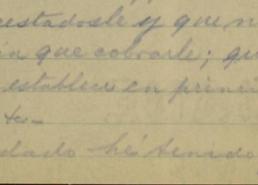 restadosle y que n
in que cobrarle; qu
establece en princi
to-
dado hé tenido